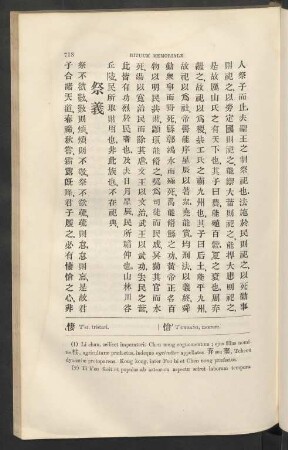 RITUUM MEMORIALE
人祭子而止夫聖王之制祭祀也法施於民則祀之以死勤事
則祀之以勞定國則祀之能禦大菑則祀之能捍大患則祀之
是故厲山氏之有天下也其子曰農能殖百穀夏之衰也周棄
繼之故祀以為稷共工氏之霸九州也其子曰后土能平九州
故祀以為社帝嚳能序星辰以著衆堯能賞均刑法以義終舜
勤衆事而野死鯀鄣鴻水而殛死禹能脩鯀之功黃帝正名百
物以明民共財顓頊能脩之契為司徒而民成冥勤其官而水
死湯以寬治民而除其虐文王以文治武王以武功去民之菑
此皆有功烈於民者也及夫日月星辰民所瞻仰也山林川谷
丘陵民所取財用也非此族也不在祀典
祭義
祭不欲數數則煩煩則不敬祭不欲疏疏則怠怠則忘是故君
子合諸天道春禘秋嘗霜露既降君子履之必有悽愴之心非
悽
愴